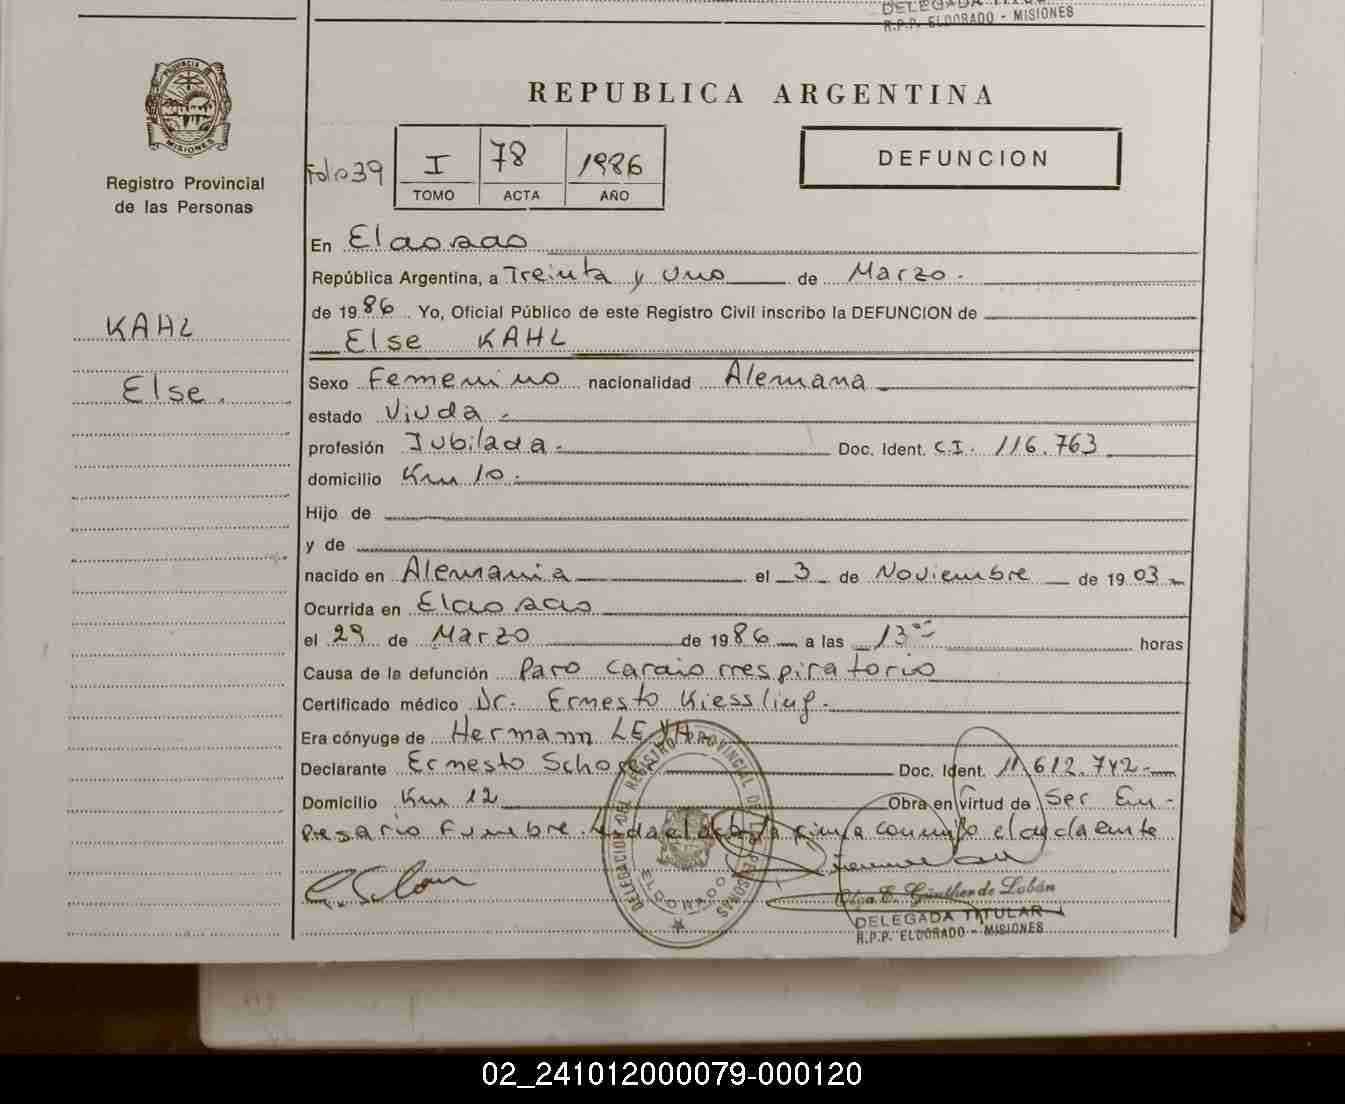 DELEGADA TITULAR
R.P.P. ELDORADO - MISIONES
PROVINCIA DE
MISIONES
Registro Provincial
de las Personas
REPUBLICA ARGENTINA
Folio 39
I 78 1986
TOMO ACTA AÑO
DEFUNCION
KAHL
Else.
En Eldorado
República Argentina, a Treinta y uno de Marzo.
de 1986. Yo, Oficial Público de este Registro Civil inscribo la DEFUNCION de
Else KAHL
Sexo Femenino nacionalidad Alemana
estado Viuda
profesión Jubilada. Doc. Ident. C.I. 116.763
domicilio Km 10.
Hijo de
y de
nacido en Alemania el 3 de Noviembre de 1903
Ocurrida en Eldorado
el 29 de Marzo de 1986 a las 13 horas
Causa de la defunción Paro cardiorrespiratorio
Certificado médico Dr. Ernesto Kiessling.
Era cónyuge de Hermann
Declarante Ernesto Doc. Ident. 11.612.742
Domicilio Km 12 Obra en virtud de Ser Em-
presario Fúnebre. firma conmigo el declarante
DELEGACION DEL REGISTRO PROVINCIAL DE LAS PERSONAS
ELDORADO
Olga E. Günther de Lobán
DELEGADA TITULAR
R.P.P. ELDORADO - MISIONES
02_241012000079-000120